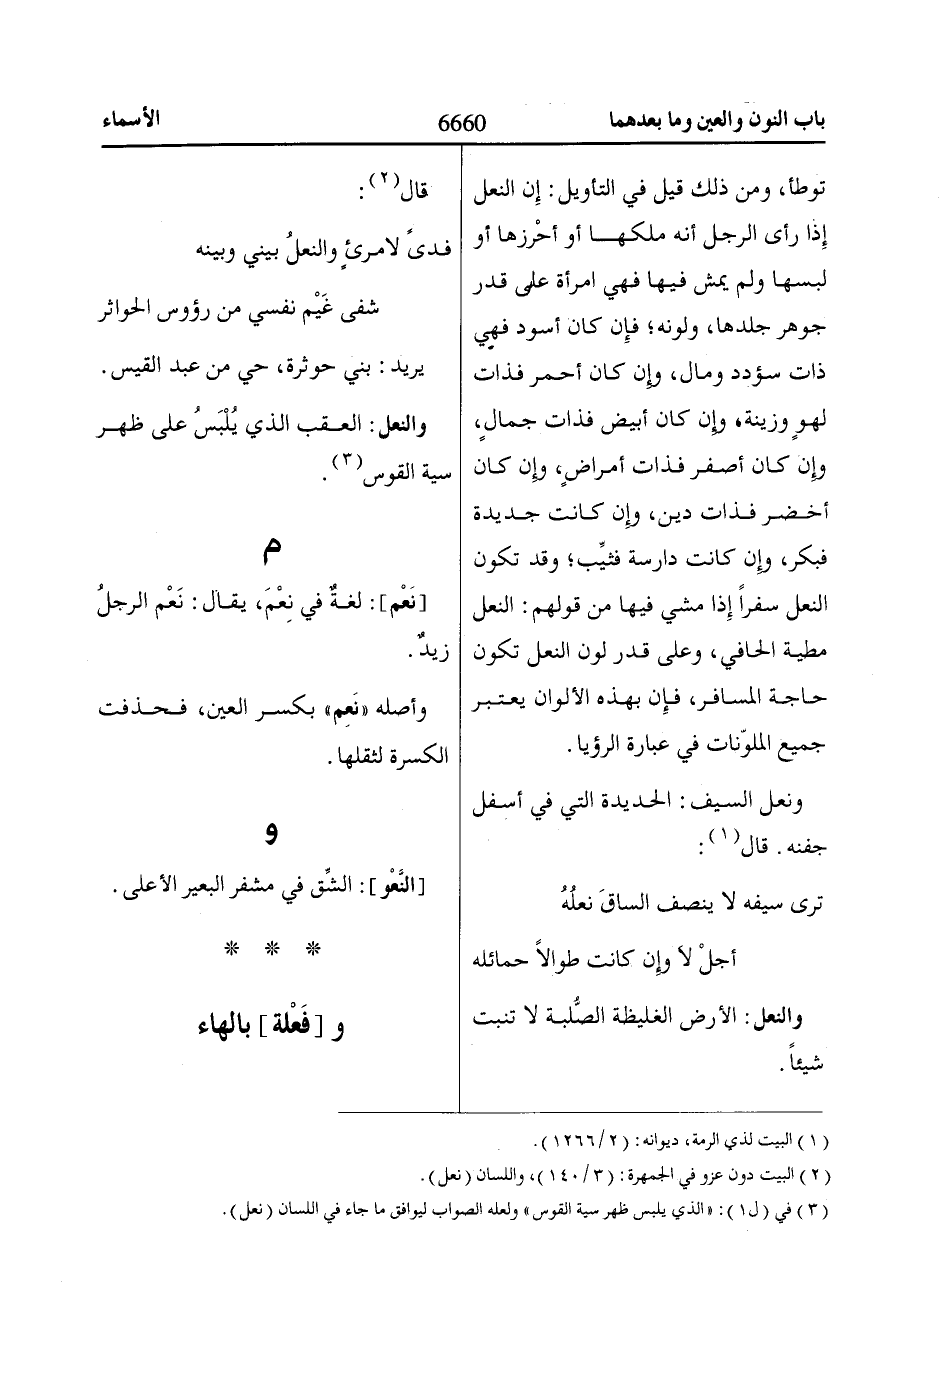 باب النون والعين وما بعدهما
6660
الأسماء
توطأ، ومن ذلك قيل في التأويل: إن النعل
إذا رأى الرجل أنه ملكها أو أحْرزها أو
لبسها ولم يمش فيها فهي امرأة على قدر
جوهر جلدها، ولونه؛ فإن كان أسود فهي
ذات سؤدد ومال، وإن كان أحمر فذات
لهوٍ وزينة، وإن كان أبيض فذات جمالٍ،
وإن كان أصفر فذات أمراضٍ، وإن كان
أخضر فذات دين، وإن كانت جديدة
فبكر، وإن كانت دارسة فثيِّب؛ وقد تكون
النعل سفراً إذا مشي فيها من قولهم: النعل
مطية الحافي، وعلى قدر لون النعل تكون
حاجة المسافر، فإن بهذه الألوان يعتبر
جميع الملوّنات في عبارة الرؤيا.
ونعل السيف: الحديدة التي في أسفل
جفنه. قال(١):
ترى سيفه لا ينصف الساقَ نعلُهُ
أجلْ لا وإن كانت طوالاً حمائله
والنعل: الأرض الغليظة الصُّلبة لا تنبت
شيئاً.
قال(٢):
فدىً لامرئٍ والنعلُ بيني وبينه
شفى غَيْم نفسي من رؤوس الحواثر
يريد: بني حوثرة، حي من عبد القيس.
والنعل: العقب الذي يُلْبَسُ على ظهر
سية القوس(٣).
م
[نَعْم]: لغةٌ في نِعْمَ، يقال: نَعْم الرجلُ
زيدٌ.
وأصله «نَعِم» بكسر العين، فحذفت
الكسرة لثقلها.
و
[النَّعْو]: الشَّق في مشفر البعير الأعلى.
* * *
و [فَعْلة] بالهاء
(١) البيت لذي الرمة، ديوانه: (٢/١٢٦٦).
(٢) البيت دون عزو في الجمهرة: (٣/١٤٠)، واللسان (نعل).
(٣) في (ل١): «الذي يلبس ظهر سية القوس» ولعله الصواب ليوافق ما جاء في اللسان (نعل).